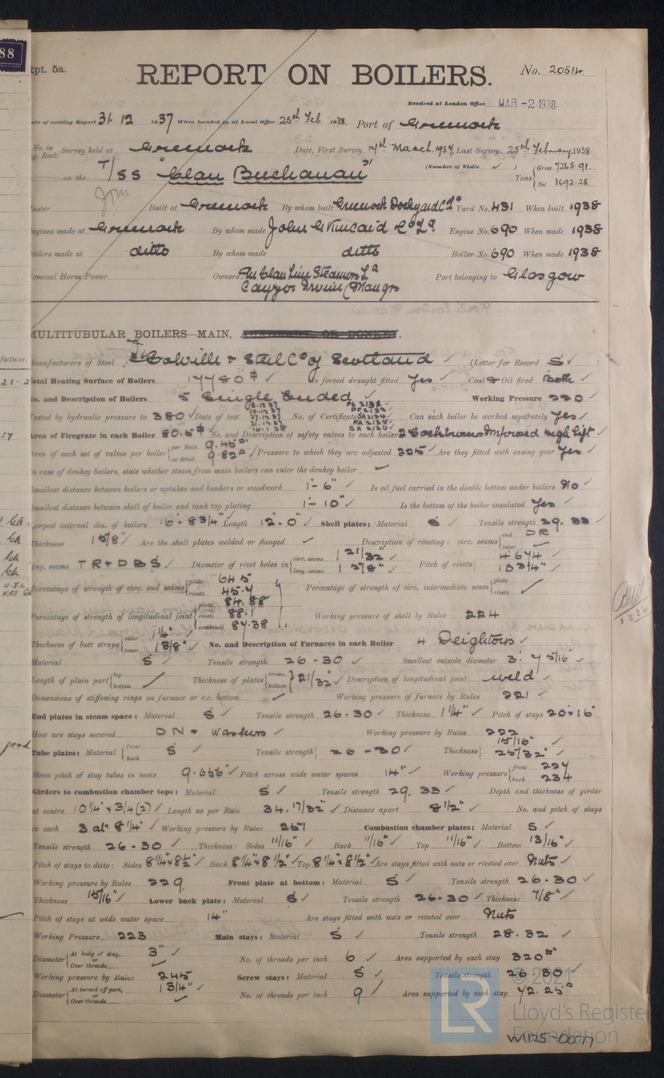 88
Rpt. 5a.
REPORT ON BOILERS.
No. 20514
Received at London Office MAR -2 1938
Date of writing Report 31. 12 1937 When handed in at Local Office 25th Feb 1938. Port of Greenock
No. in Survey held at Greenock Date, First Survey 4th March 1937. Last Survey 25th February 1938
on the T/SS "Clan Buchanan" (Number of Visits ) Tons Gross 7265.91. Net
Master Built at Greenock By whom built Greenock Dockyard Co Ld Yard No. 431 When built 1938
Engines made at Greenock By whom made John G. Kincaid & Co Ld Engine No. 690 When made 1938
Boilers made at ditto By whom made ditto Boiler No. 690 When made 1938
Nominal Horse Power Owners The Clan Line Steamers Ld Port belonging to Glasgow
Cayzer Irvine Mangrs
MULTITUBULAR BOILERS—MAIN,
Manufacturers of Steel Colville & Steel Co of Scotland (Letter for Record S)
Total Heating Surface of Boilers 17780 Is forced draught fitted Yes Coal & Oil fired Both
No. and Description of Boilers 5 Single Ended Working Pressure 220
Tested by hydraulic pressure to 380 Date of test No. of Certificate Can each boiler be worked separately Yes
Area of Firegrate in each Boiler 80.5 No. and Description of safety valves to each boiler 2 Cockburns Improved High lift
Area of each set of valves per boiler per Rule 9.45 as fitted 9.82 Pressure to which they are adjusted 225 Are they fitted with easing gear Yes
In case of donkey boilers, state whether steam from main boilers can enter the donkey boiler
Smallest distance between boilers or uptakes and bunkers or woodwork 1'-6" Is oil fuel carried in the double bottom under boilers No
Smallest distance between shell of boiler and tank top plating 1'-10" Is the bottom of the boiler insulated Yes
Largest internal dia. of boilers 16'-8 3/4" Length 12'-0" Shell plates: Material S Tensile strength 29. 33
Thickness Are the shell plates welded or flanged Description of riveting: circ. seams end DR inter.
long. seams TR & DBS Diameter of rivet holes in circ. seams 1 21/32" long. seams Pitch of rivets
Percentage of strength of circ. end seams plate 64.5 rivets 45.4 Percentage of strength of circ. intermediate seam plate rivets
Percentage of strength of longitudinal joint plate 84.88 rivets 88.1 combined 87.38 Working pressure of shell by Rules 224
Thickness of butt straps outer 1 1/4" inner 1 3/8" No. and Description of Furnaces in each Boiler 4 Deightons
Material S Tensile strength 26-30 Smallest outside diameter 3'. 7 5/16"
Length of plain part top bottom Thickness of plates crown bottom 21/32" Description of longitudinal joint weld
Dimensions of stiffening rings on furnace or c.c. bottom Working pressure of furnace by Rules 221
End plates in steam space: Material S Tensile strength 26-30 Thickness 1 1/4" Pitch of stays 20 × 16"
How are stays secured D N & Washers Working pressure by Rules 222
Tube plates: Material front back S Tensile strength 26-30 Thickness 15/16" 25/32"
Mean pitch of stay tubes in nests 9.656" Pitch across wide water spaces 14" Working pressure front 227 back 234
Girders to combustion chamber tops: Material S Tensile strength 29. 33 Depth and thickness of girder
at centre 10 1/4" × 3/4 (2) Length as per Rule 34.17/32" Distance apart 8 1/2" No. and pitch of stays
in each 3 at 8 1/4" Working pressure by Rules Combustion chamber plates: Material S
Tensile strength 26-30 Thickness: Sides 11/16" Back 11/16" Top 11/16" Bottom 13/16"
Pitch of stays to ditto: Sides 8 1/4 × 8 1/2" Back 8 1/4 × 8 1/2" Top 8 1/4 × 8 1/2" Are stays fitted with nuts or riveted over Nuts
Working pressure by Rules 229 Front plate at bottom: Material S Tensile strength 26-30
Thickness 15/16" Lower back plate: Material S Tensile strength 26-30 Thickness 7/8"
Pitch of stays at wide water space 14" Are stays fitted with nuts or riveted over Nuts
Working Pressure 223 Main stays: Material S Tensile strength 28-32
Diameter At body of stay, or Over threads 3" No. of threads per inch 6 Area supported by each stay 320
Working pressure by Rules 245 Screw stays: Material S Tensile strength 26-30
Diameter At turned off part, or Over threads 1 3/4" No. of threads per inch 9 Area supported by each stay 72.25
© 2021
LR
Lloyd's Register
Foundation
W1125-0077